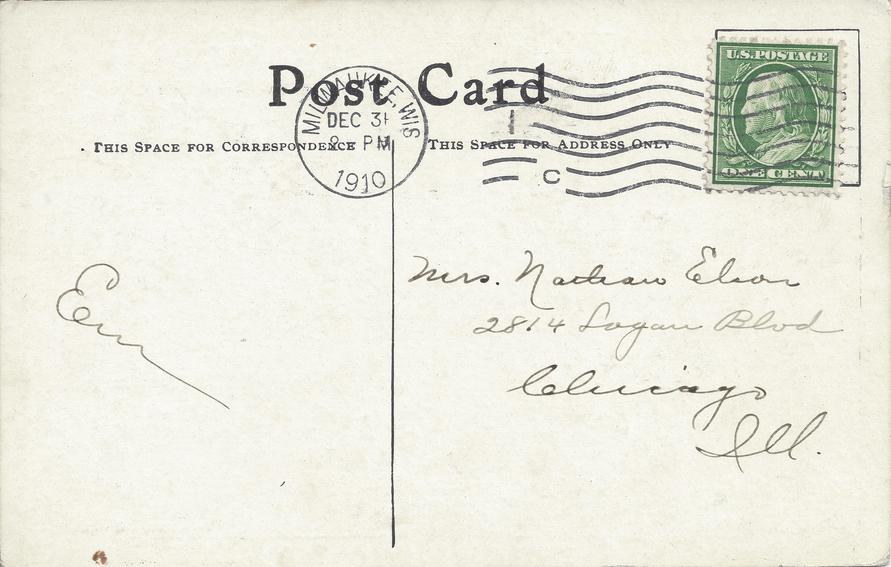 Post Card
MILWAUKEE, WIS
DEC 31
8 PM
1910
1
C
U.S. POSTAGE
ONE CENT
THIS SPACE FOR CORRESPONDENCE
THIS SPACE FOR ADDRESS ONLY
Em
Mrs. Nathan Elson
2814 Logan Blvd
Chicago
Ill.